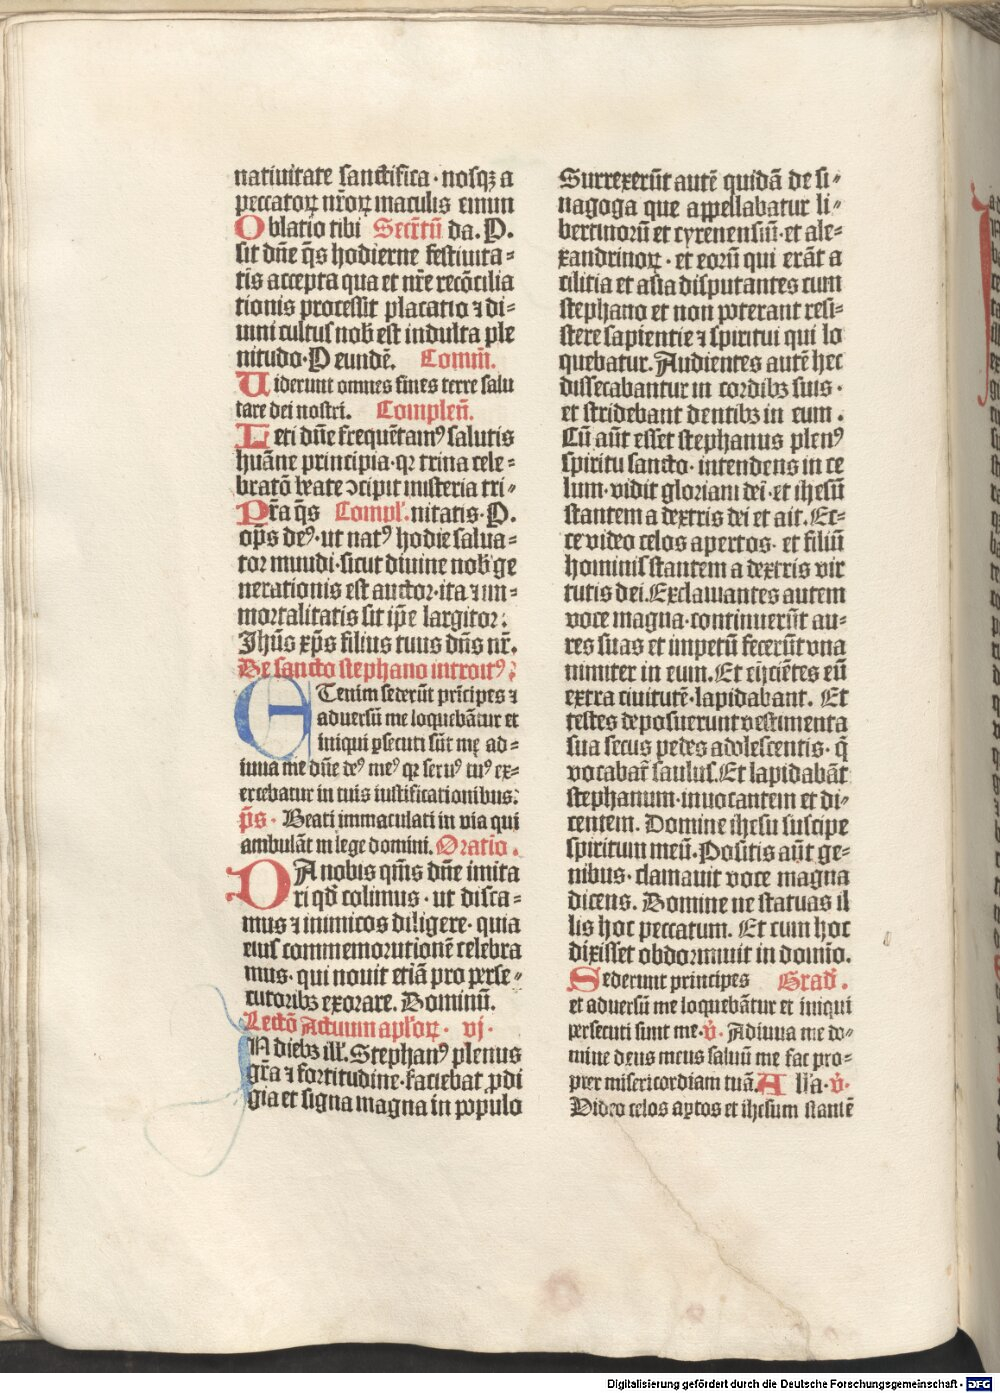 natiuitate sanctifica · nosqꝫ a
peccatoꝝ nr̃oꝝ maculis emun
Oblatio tibi Secr̃tũ da. P.
sit dñe q̃s hodierne festiuita⸗
tis accepta qua et nr̃e recõcilia
tionis processit placatio ⁊ di⸗
uini cultus nob̃ est indulta ple
nitudo · P eundẽ. Comm̃.
Uiderunt omnes fines terre salu
tare dei nostri. Complen̄.
Leti dñe frequẽtamꝰ salutis
huãne principia · qꝛ trina cele⸗
bratõ beate ↄcipit misteria tri⸗
Pr̃a q̃s Compl̛. nitatis · P.
op̃s deꝰ · ut natꝰ hodie salua⸗
tor mundi · sicut diuine nob̃ ge
nerationis est auctor · ita ⁊ im⸗
mortalitatis sit ip̃e largitor :
Jhũs xp̃s filius tuus dñs nr̃.
De sancto stephano introitꝰ :
ETenim sederũt prĩcipes ⁊
aduersũ me loquebãtur et
iniqui ꝑsecuti sũt me ad⸗
iuua me dñe deꝰ meꝰ qꝛ seruꝰ tuꝰ ex⸗
ercebatur in tuis iustificationibus.
p̃s · Beati immaculati in via qui
ambulãt in lege domini. Oratio .
DA nobis qm̃s dñe imita
ri qd̃ colimus · ut disca⸗
mus ⁊ inimicos diligere · quia
eius commemorationẽ celebra
mus · qui nouit etiã pro perse⸗
cutoribꝫ exorare. Dominũ.
Lectõ Actuum apl̃oꝝ · vj ·
IN diebꝫ ill̛. Stephanꝰ plenus
gr̃a ⁊ fortitudine · faciebat ꝓdi
gia et signa magna in populo
Surrexerũt autẽ quidã de si⸗
nagoga que appellabatur li⸗
bertinorũ et cyrenensiũ · et ale⸗
xandrinoꝝ · et eorũ qui erãt a
cilitia et asia disputantes cum
stephano et non poterant resi⸗
stere sapientie ⁊ spiritui qui lo
quebatur. Audientes autẽ hec
dissecabantur in cordibꝫ suis ·
et stridebant dentibꝫ in eum .
Cũ aũt esset stephanus plenꝰ
spiritu sancto · intendens in ce
lum · vidit gloriam dei · et ihesũ
stantem a dextris dei et ait. Ec⸗
ce video celos apertos · et filiũ
hominis stantem a dextris vir
tutis dei. Exclamantes autem
voce magna · continuerũt au⸗
res suas et impetũ fecerũt vna
nimiter in eum. Et eijciẽtes eũ
extra ciuitatẽ · lapidabant. Et
testes deposuerunt vestimenta
sua secus pedes adolescentis · q̃
vocabat̃ saulus. Et lapidabãt
stephanum · inuocantem et di⸗
centem. Domine ihesu suscipe
spiritum meũ. Positis aũt ge⸗
nibus · clamauit voce magna
dicens. Domine ne statuas il
lis hoc peccatum. Et cum hoc
dixisset obdormiuit in domĩo.
Sederunt principes Grad̛ .
et aduersũ me loquebãtur et iniqui
persecuti sunt me · v̛ · Adiuua me do⸗
mine deus meus saluũ me fac pro⸗
pter misericordiam tuã. All̛a · v̛ ·
Video celos aꝑtos et ihesum stantẽ
Digitalisierung gefördert durch die Deutsche Forschungsgemeinschaft - DFG